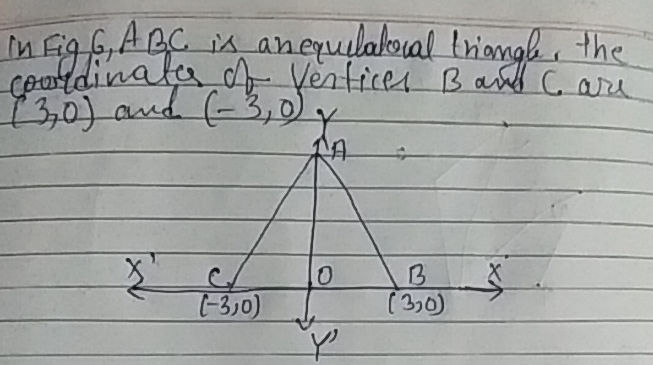 In Fig 6, ABC is an equilateral triangle, the
coordinates of vertices B and C are
(3,0) and (-3,0)
Y
A
X' C O B X
(-3,0) (3,0)
Y'